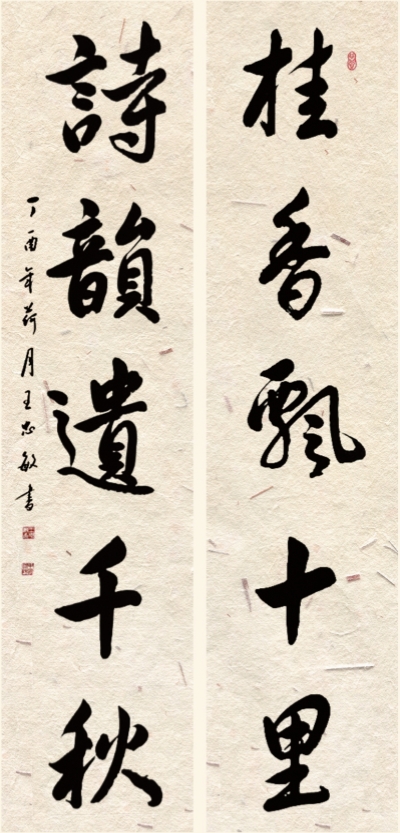 桂香飄十里
詩韻遺千秋
丁酉年荷月王忠敏書